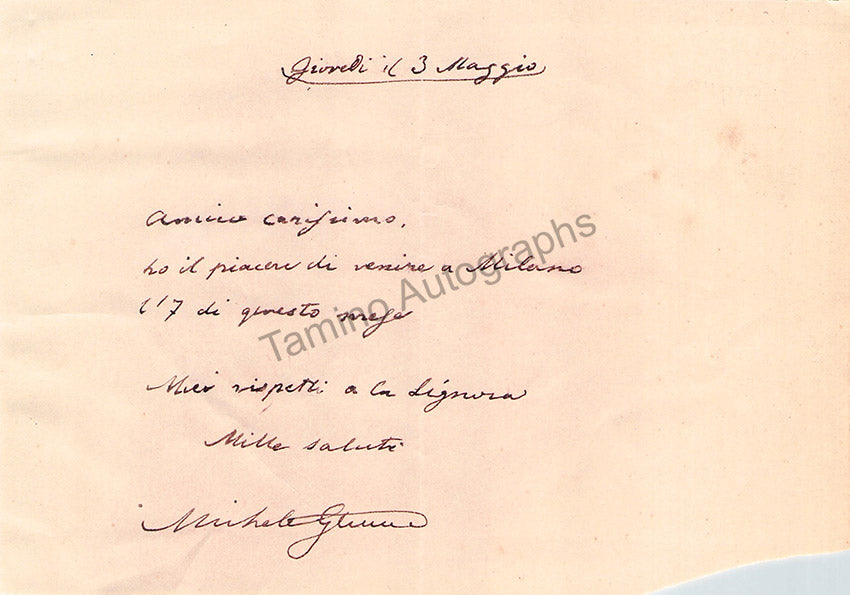 Giovedi il 3 Maggio
Amico carissimo,
ho il piacere di venire a Milano
l'7 di questo mese
Miei rispetti a la Signora
Mille saluti
Michele
Tamino Autographs